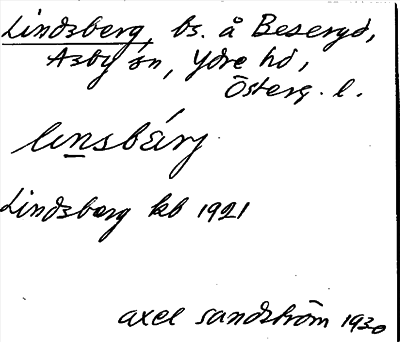 Lindsberg, bs. å Beseryd,
Asby sn, Ydre hd,
Österg. l.
li̱nsbárj
Lindsberg kb 1921
Axel Sandström 1930